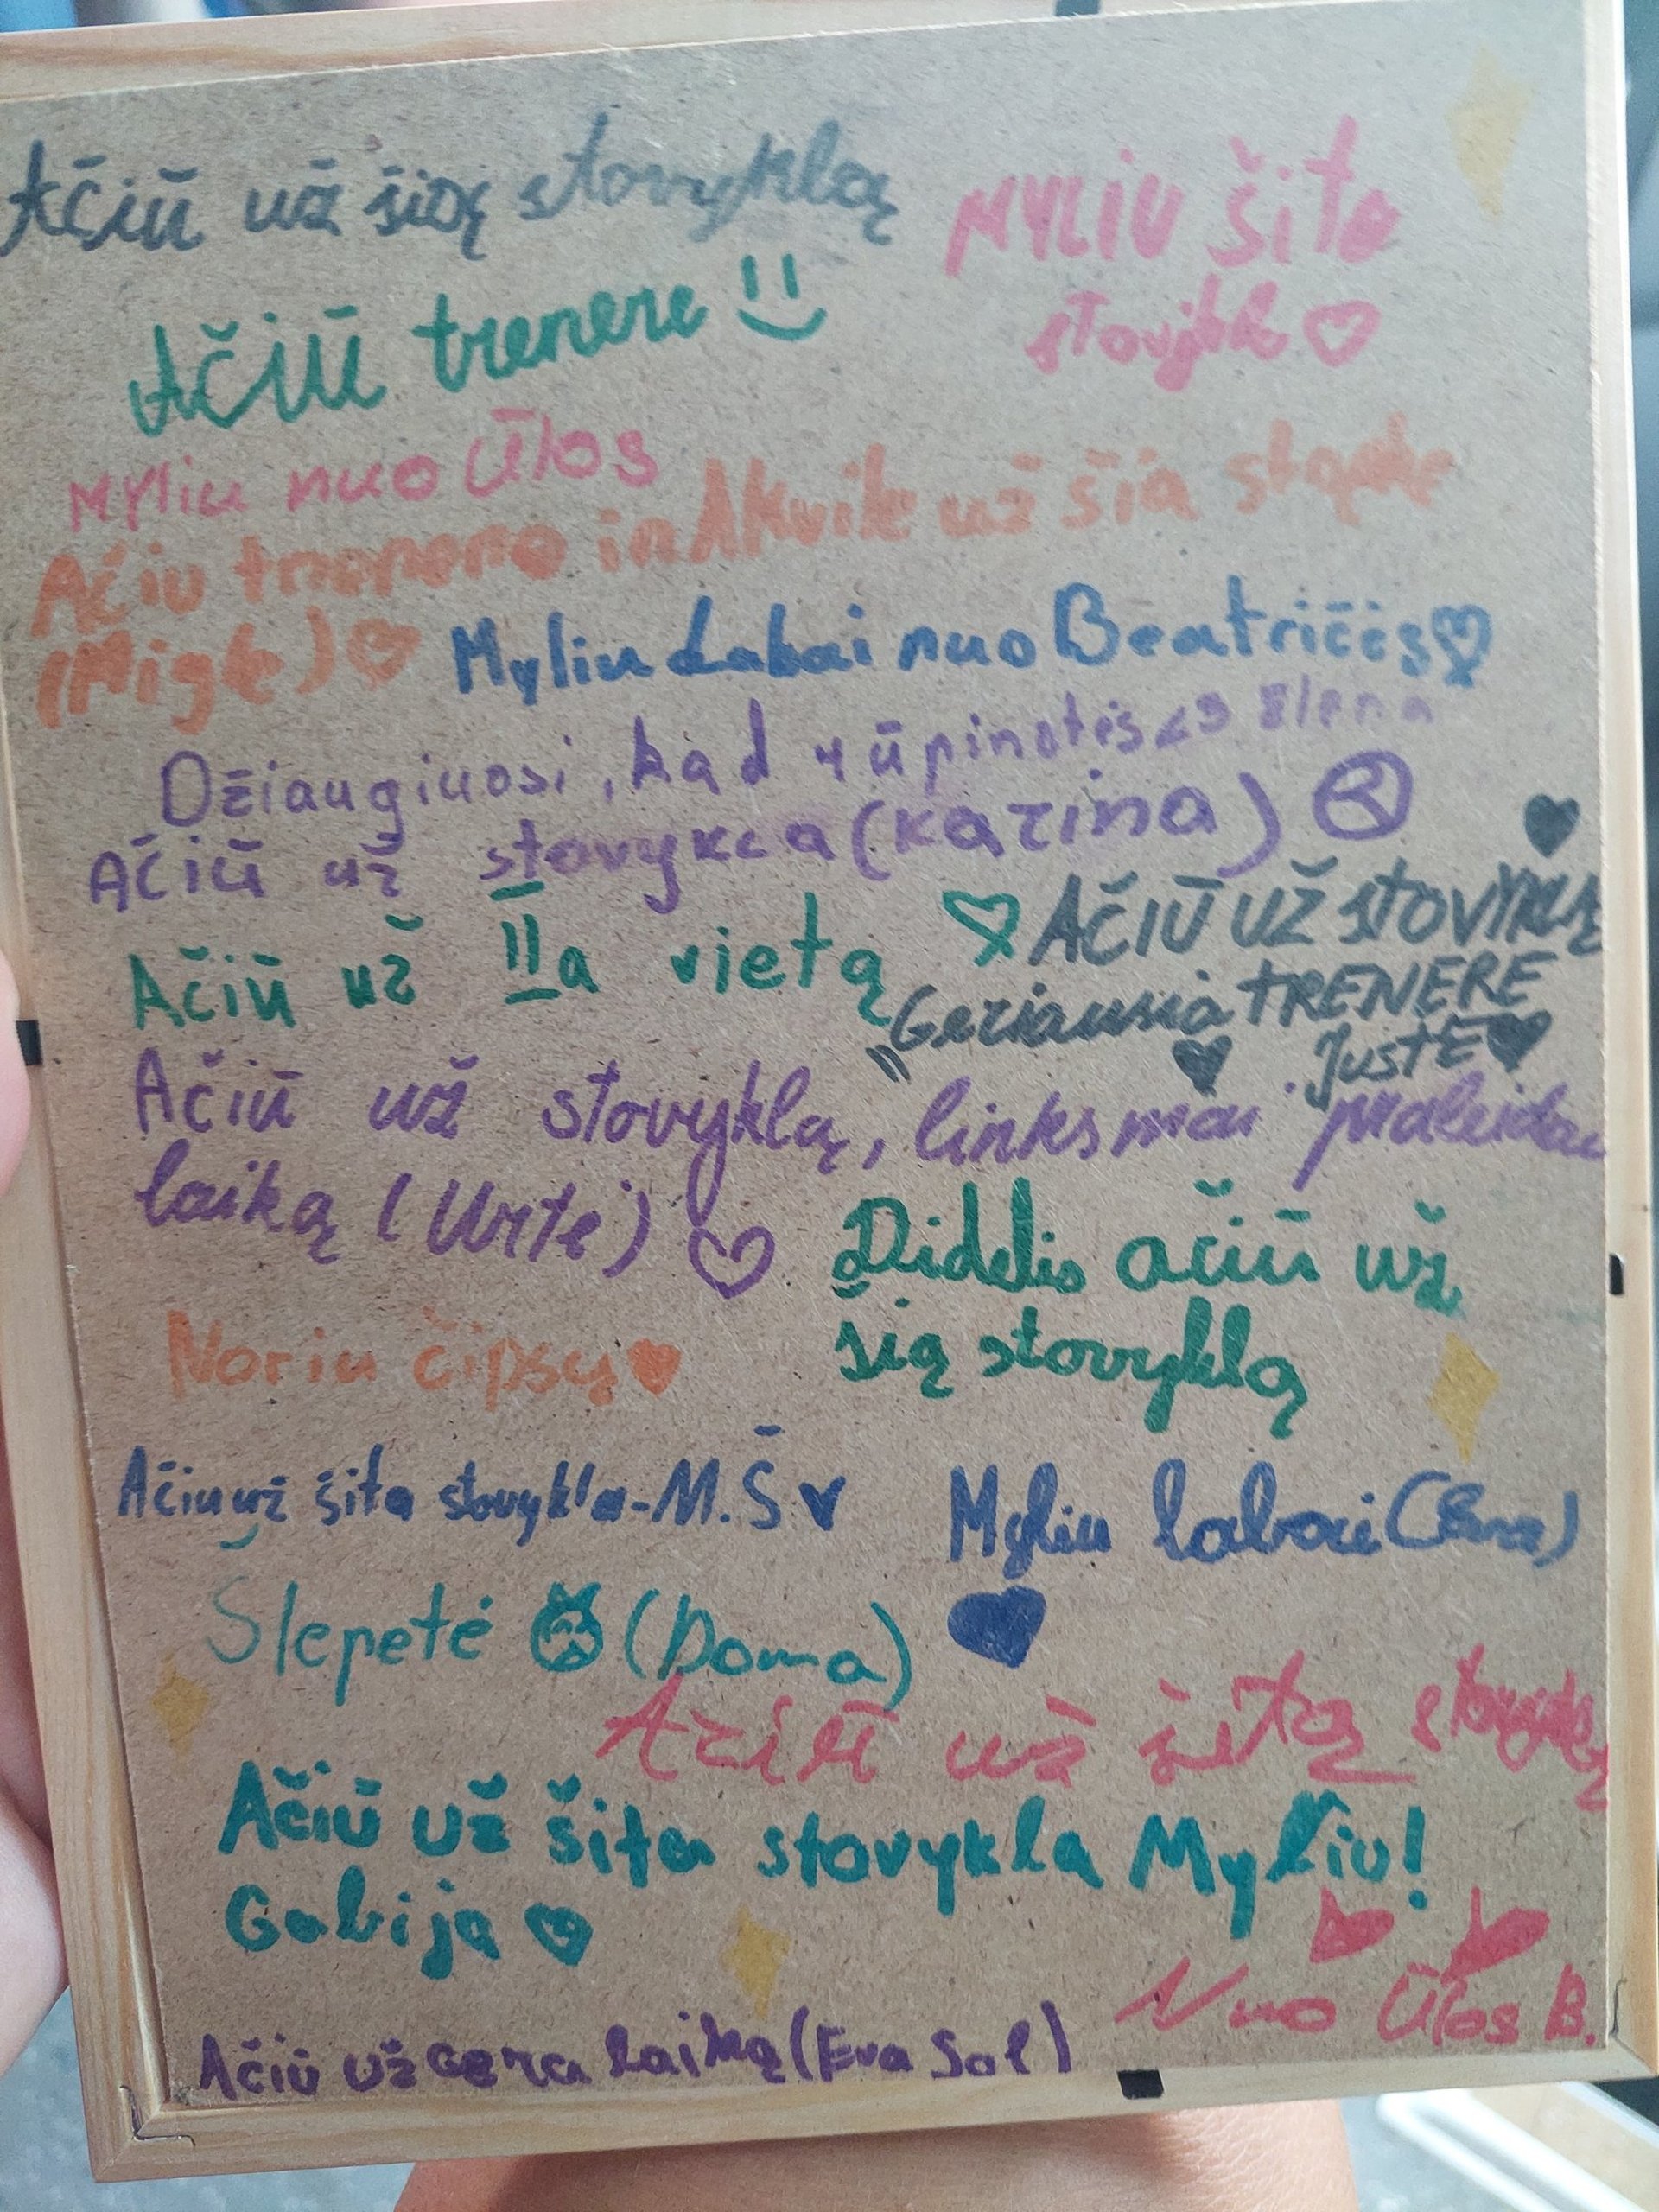 Ačiū už šią stovyklą
MYLIU šita
stovykla
Ačiū trenere
Myliu nuo Ūlos
Ačiu už šia
(Migle)
Myliu Labai nuo Beatričės
Džiaugiuosi, kad rūpinatės <3 Elena
Ačiū už stovykla (Karina)
Ačiū už IIa vietą
AČIŪ UŽ stOVYKLĄ
Geriausia TRENERE
JustĖ
Ačiū už stovyklą, linksmai praleidau
laiką (Urtė)
Didelis ačiū už
šią stovyklą
Noriu čipsų
Ačiu už šita stovykla-M.Š
Myliu labai (Eva)
Šlepetė (Doma)
Ačiū už šitą stovyklą
Ačiū už šita stovykla Myliu!
Gabija
Nuo Ūlos B.
Ačiū už gera laiką (Eva Sal)